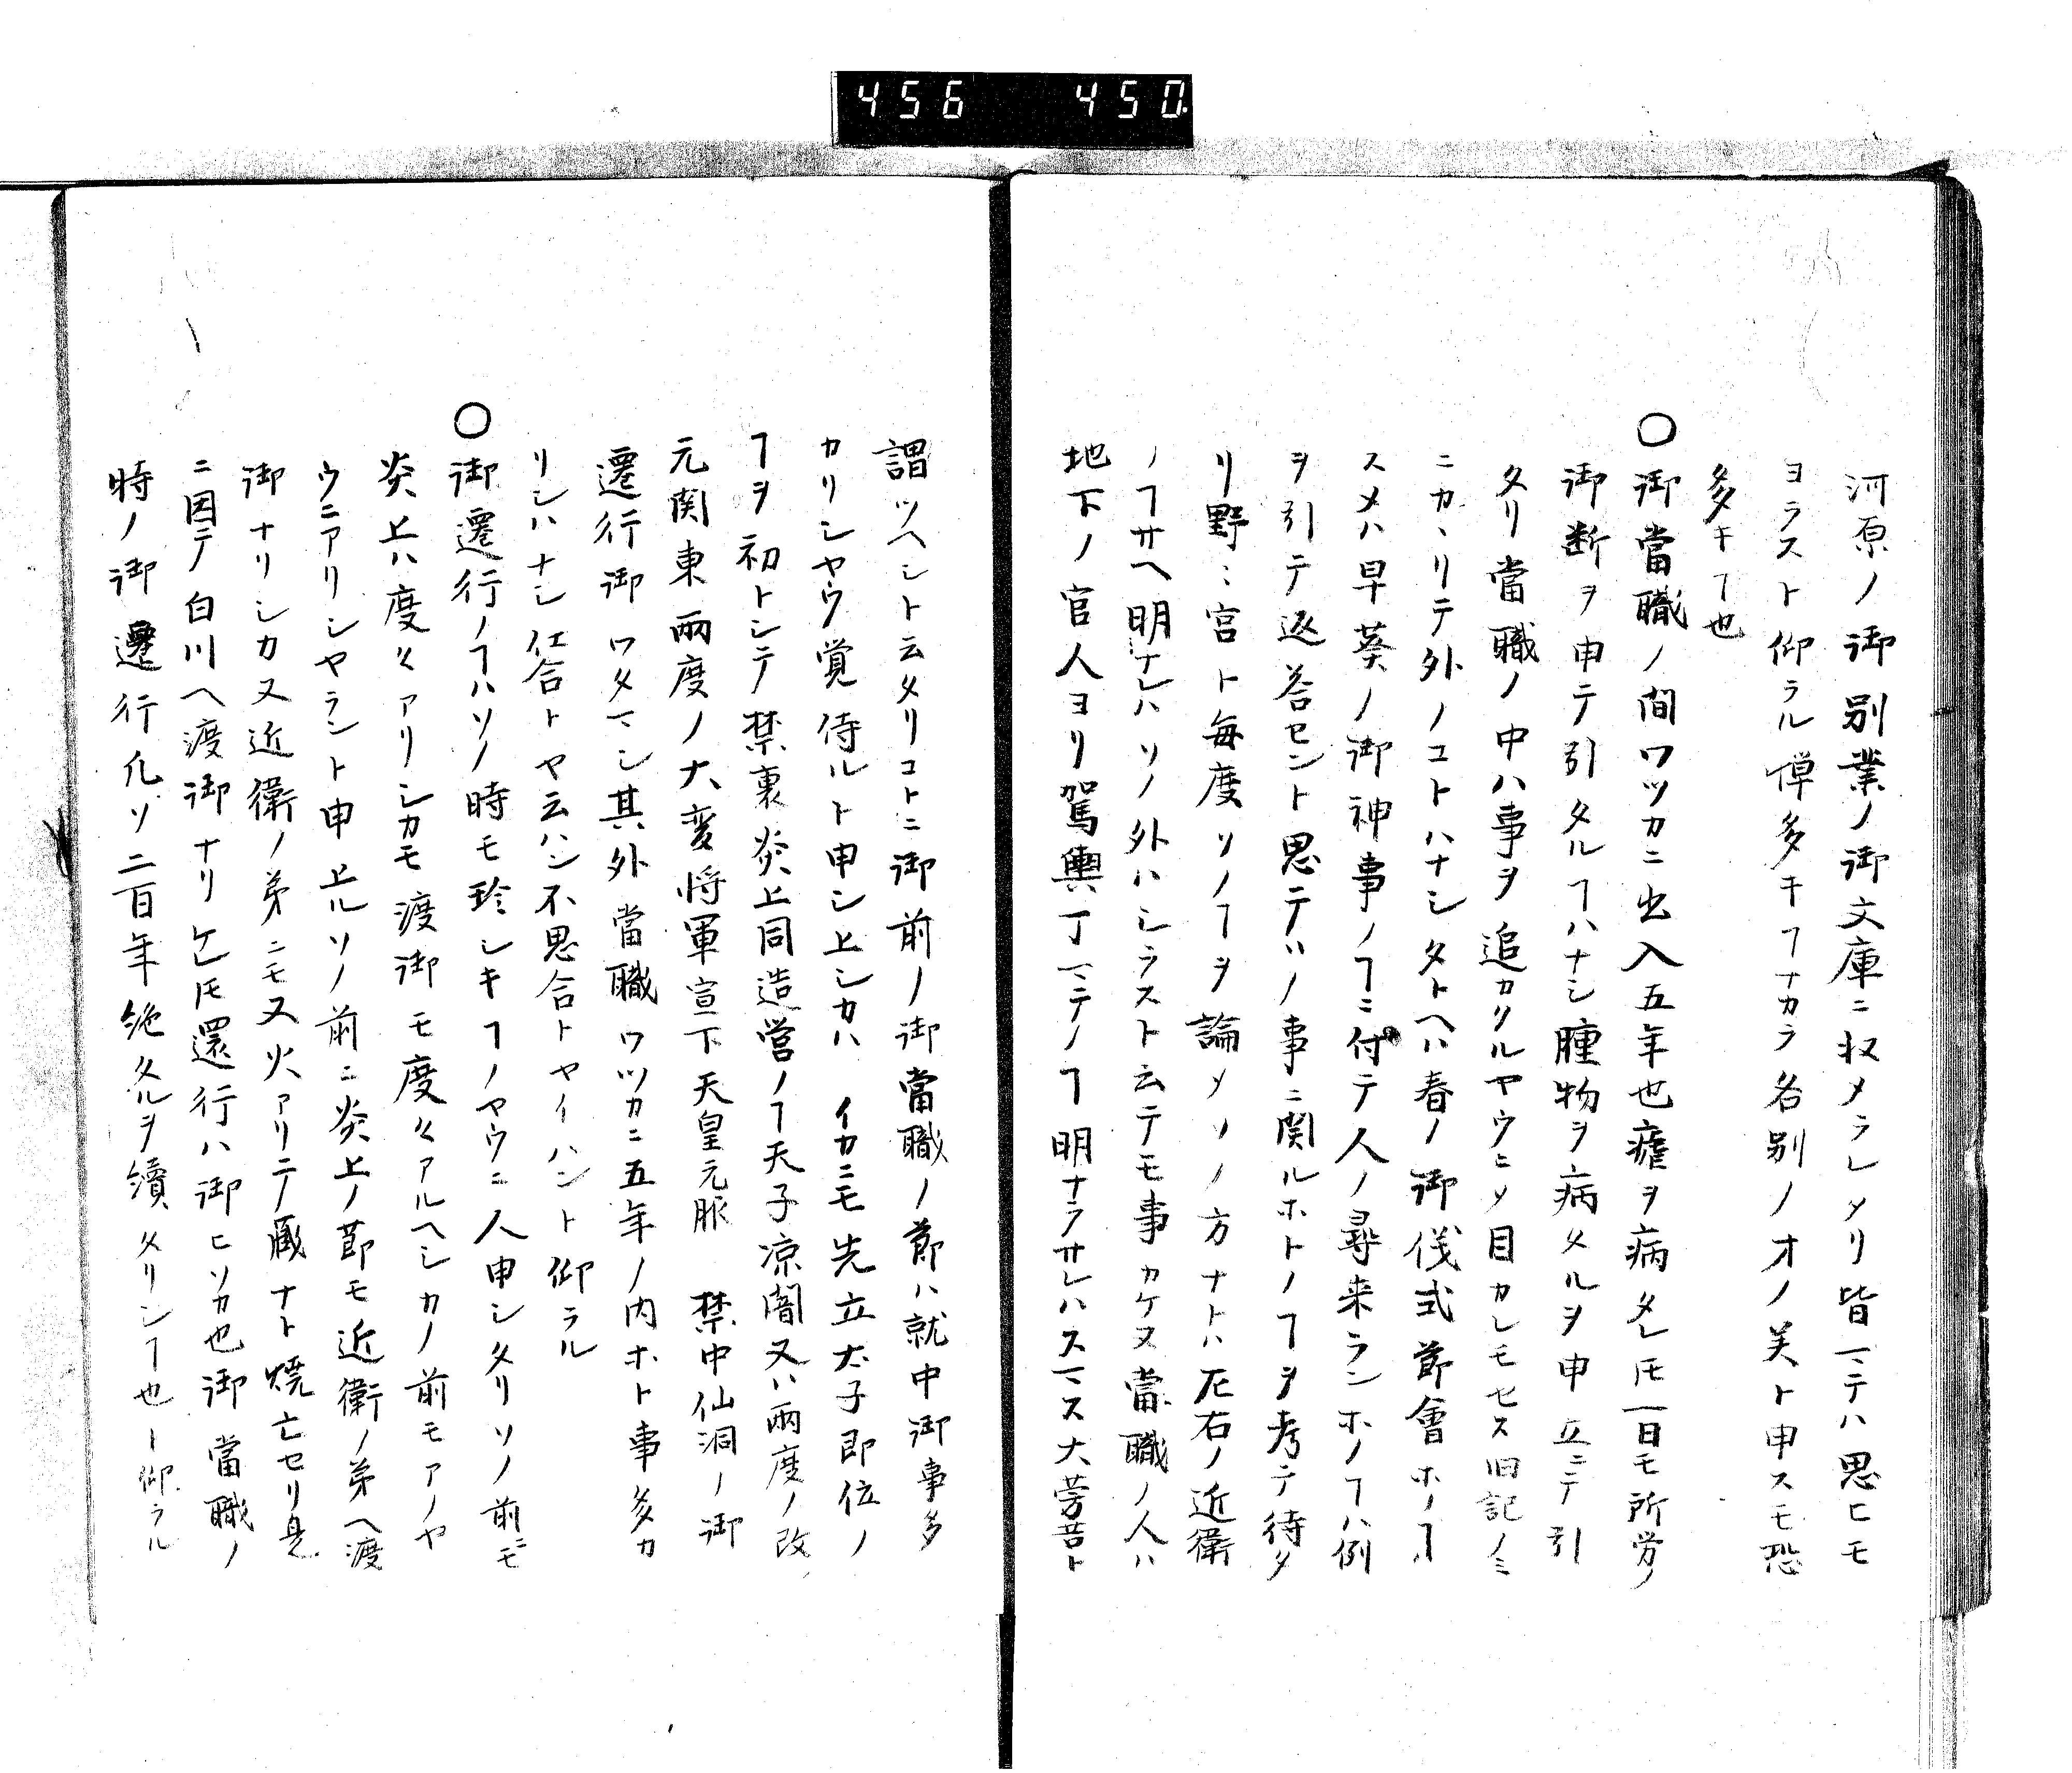 456 450
河原ノ御別業ノ御文庫ニ収メラレタリ皆一ミテハ思ヒモ
ヨラスト仰ラル憚多キヿナカラ各別ノオノ美ト申スモ恐
多キヿ也
〇御當職ノ間ワツカニ出入五年也瘧ヲ病タレ𪜈一日モ所労ノ
御断ヲ申テ引タルヿハナシ腫物ヲ病タルヲ申立ニテ引
タリ當職ノ中ハ事ヲ追カクルヤウニメ目カレモセス旧記ノミ
ニカヽリテ外ノコトハナシタトヘハ春ノ御儀式節會ホノヿ
スメハ早葵ノ御神事ノヿニ付テ人ノ尋来ランホノヿハ例
ヲ引テ返答セント思テソノ事ニ関ルホトノヿヲ考テ待タ
リ野ミ宮ト毎度ソノヿヲ論メソノ方ナトハ左右ノ近衛
ノヿサヘ明ナレハソノ外ハシラスト云テモ事カケヌ當職ノ人ハ
地下ノ官人ヨリ駕輿丁一ミテノヿ明ナラサレハスマス大労苦ト
謂ツヘシト云タリコトニ御前ノ御當職ノ節ハ就中御事多
カリシヤウ覚侍ルト申シ上シカハ イカニモ先立太子即位ノ
ヿヲ初トシテ禁裏炎上同造営ノヿ天子凉闇又ハ兩度ノ改
元関東兩度ノ大変将軍宣下天皇元服 禁中仙洞ノ御
遷行御ワタマシ其外當職ワツカニ五年ノ内ホト事多カ
リシハナシ仕合トヤ云ハン不思合トヤイハント仰ラル
〇御遷行ノヿハソノ時モ珍シキヿノヤウニ人申シタリソノ前ニモ
炎上ハ度々アリシカモ渡御モ度々アルヘシカノ前モアノヤ
ウニアリシヤラント申上ルソノ前ニ炎上ノ節モ近衛ノ第ヘ渡
御ナリシカ又近衛ノ第ニモ又火アリテノ蔵ナト焼亡セリ是
ニ因テ白川ヘ渡御ナリケレ𪜈還行ハ御ヒソカ也御當職ノ
時ノ御遷行凡ソ二百年絶タルヲ續タリシヿ也ト仰ラル